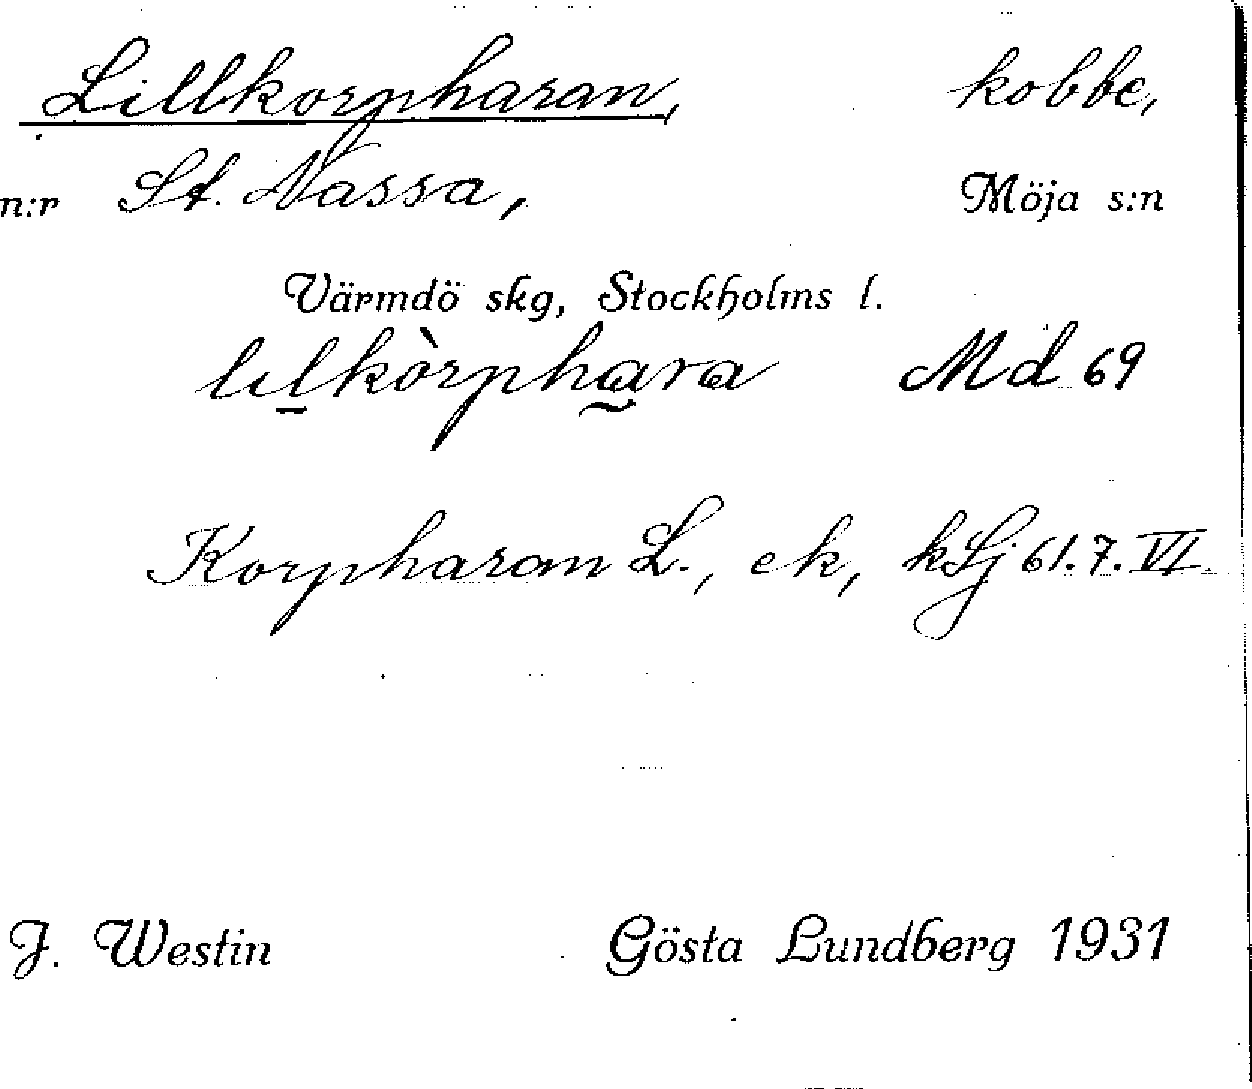 Lillkorpharan, kobbe,
n:r St. Nassa, Möja s:n
Värmdö skg, Stockholms l.
lılkòrphara Md 69
Korpharan L., ek, kSj 61.7.VI.
J. Westin Gösta Lundberg 1931